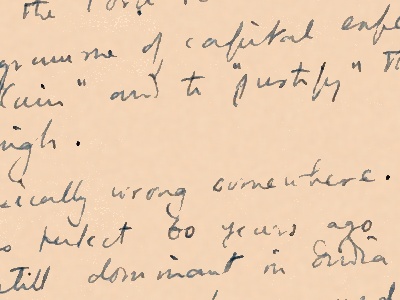 the
gramme of capital expe
" and to "justify" Th
high.
sically wrong somewhere.
perfect 60 years ago
still dominant in India